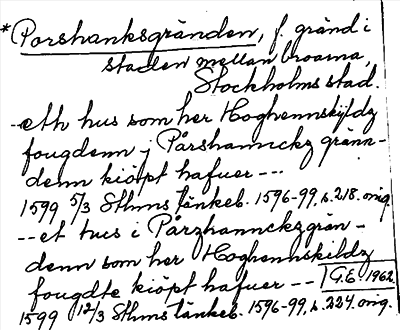 *Porshanksgränden, f. gränd i
staden mellan broarna,
Stockholms stad.
--eth hus som her Hoghennskijldz
fougdenn i Pårshannckz gränn-
denn kiöpt hafuer ---
1599 5/3 Sthms tänkeb. 1596-99, s. 218. orig.
--et hus i Pårzhannckzgrän-
denn som her Hoghennskildz
fougdte kiöpt hafuer -- G.E. 1962
1599 12/3 Sthms tänkeb. 1596-99, s. 224. orig.